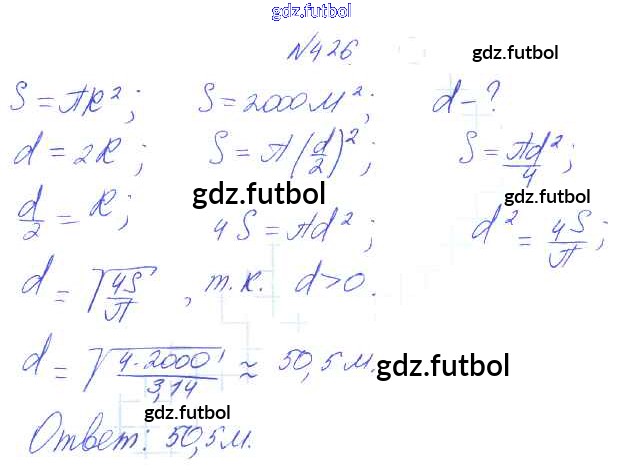 gdz.futbol
№426 gdz.futbol
S = πR²; S = 2000 м²; d - ?
d = 2R; S = π(d/2)²; S = πd²/4;
gdz.futbol gdz.futbol
d/2 = R; 4S = πd²; d² = 4S/π;
d = √(4S/π), т.к. d>0.
d = √(4·2000/3,14) ≈ 50,5 м. gdz.futbol
gdz.futbol
Ответ: 50,5 м.